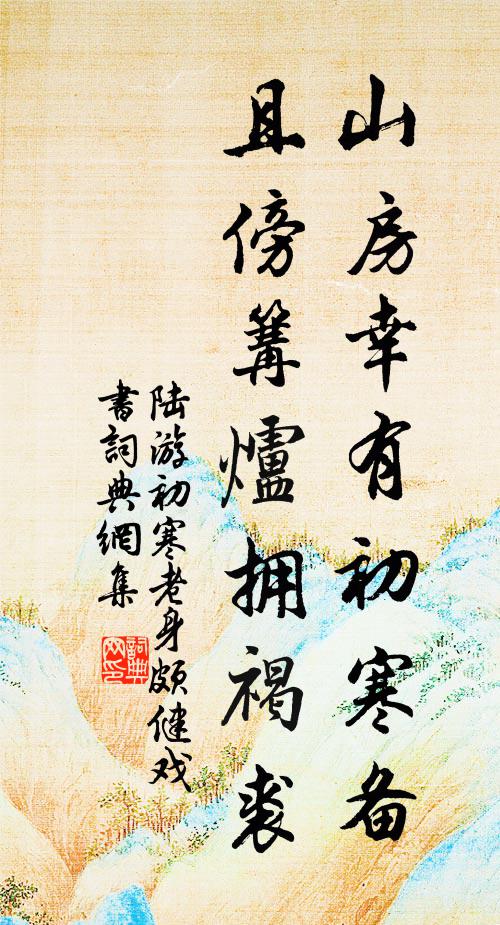 山房幸有初寒备
且傍篝爐拥褐裘
陆游初寒老身颇健戏
書詞典網集
詞典网印